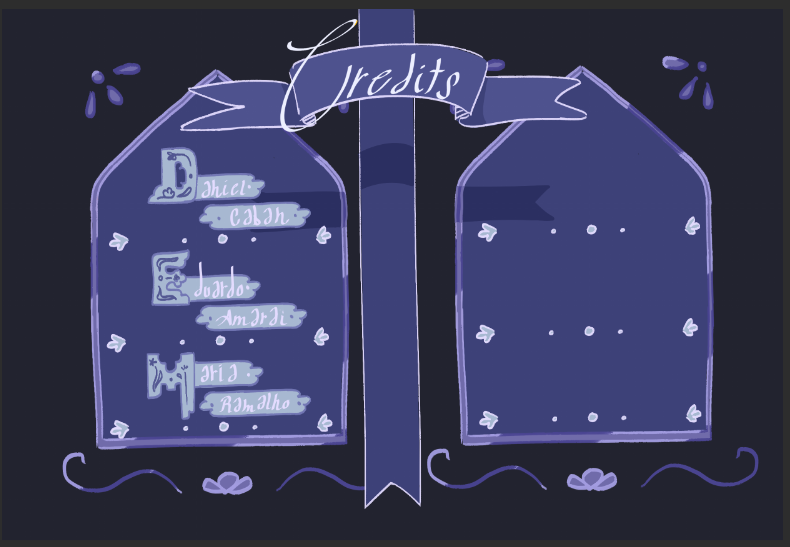 Credits
Daniel
Caban
Eduardo
Amaral
Maria
Ramalho